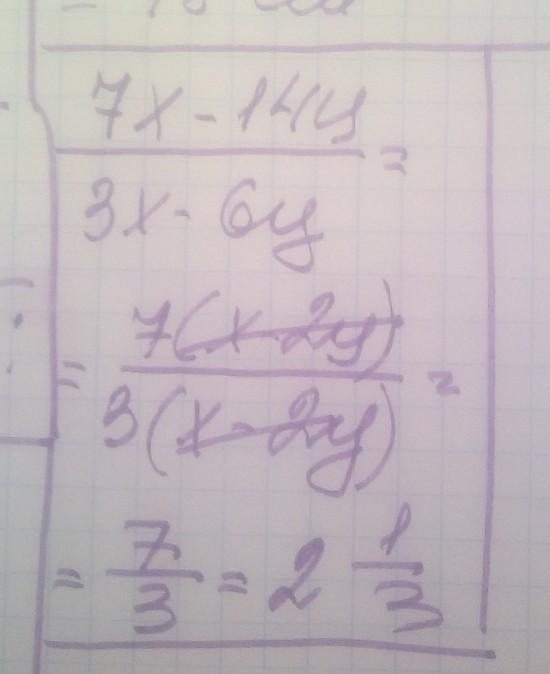 7x - 14y
3x - 6y
=
= 7(x - 2y)
3(x - 2y)
=
= 7/3 = 2 1/3